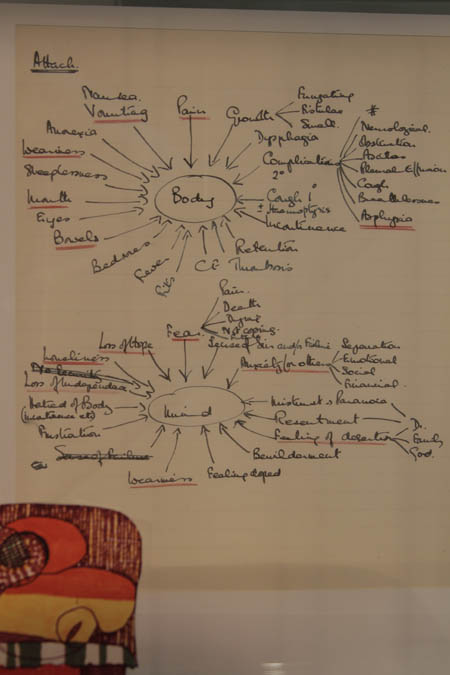 Attack.
Nausea
Vomiting
Pain
Growth
Fungating
Fistulas
Smell.
Anorexia
Dysphagia
*
Neurological.
Obstruction
Ascites
Pleural Effusion
Cough
Breathlessness
Asphyxia
Weakness
Sleeplessness
Complications
2°
Mouth
Body
Cough 1°
± Haemoptysis
Eyes
Incontinence
Bowels
Retention
Bedsores
Fever
Fits
Thrombosis
Pain.
Death
Fear
Not coping.
Loss of Hope
Sense of Sin and/or Failure
Separation
Loneliness
Anxiety for others
Emotional
Social
Financial.
Loss of Independence
Hatred of Body
Mind
Mistrust → Paranoia
Resentment
Dr.
Frustration
Feeling of desertion
Family
God.
Sense of Failure
Bewilderment
Weariness
Feeling doped